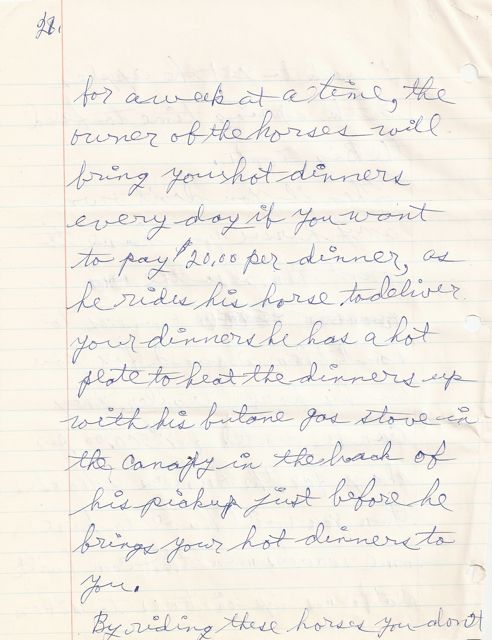 21.
for a week at a time, the
owner of the horses will
bring you hot dinners
every day if you want
to pay $20.00 per dinner, as
he rides his horse to deliver
your dinners he has a hot
plate to heat the dinners up
with his butane gas stove in
the canapy in the back of
his pickup just before he
brings your hot dinners to
you.
By riding these horses you don't